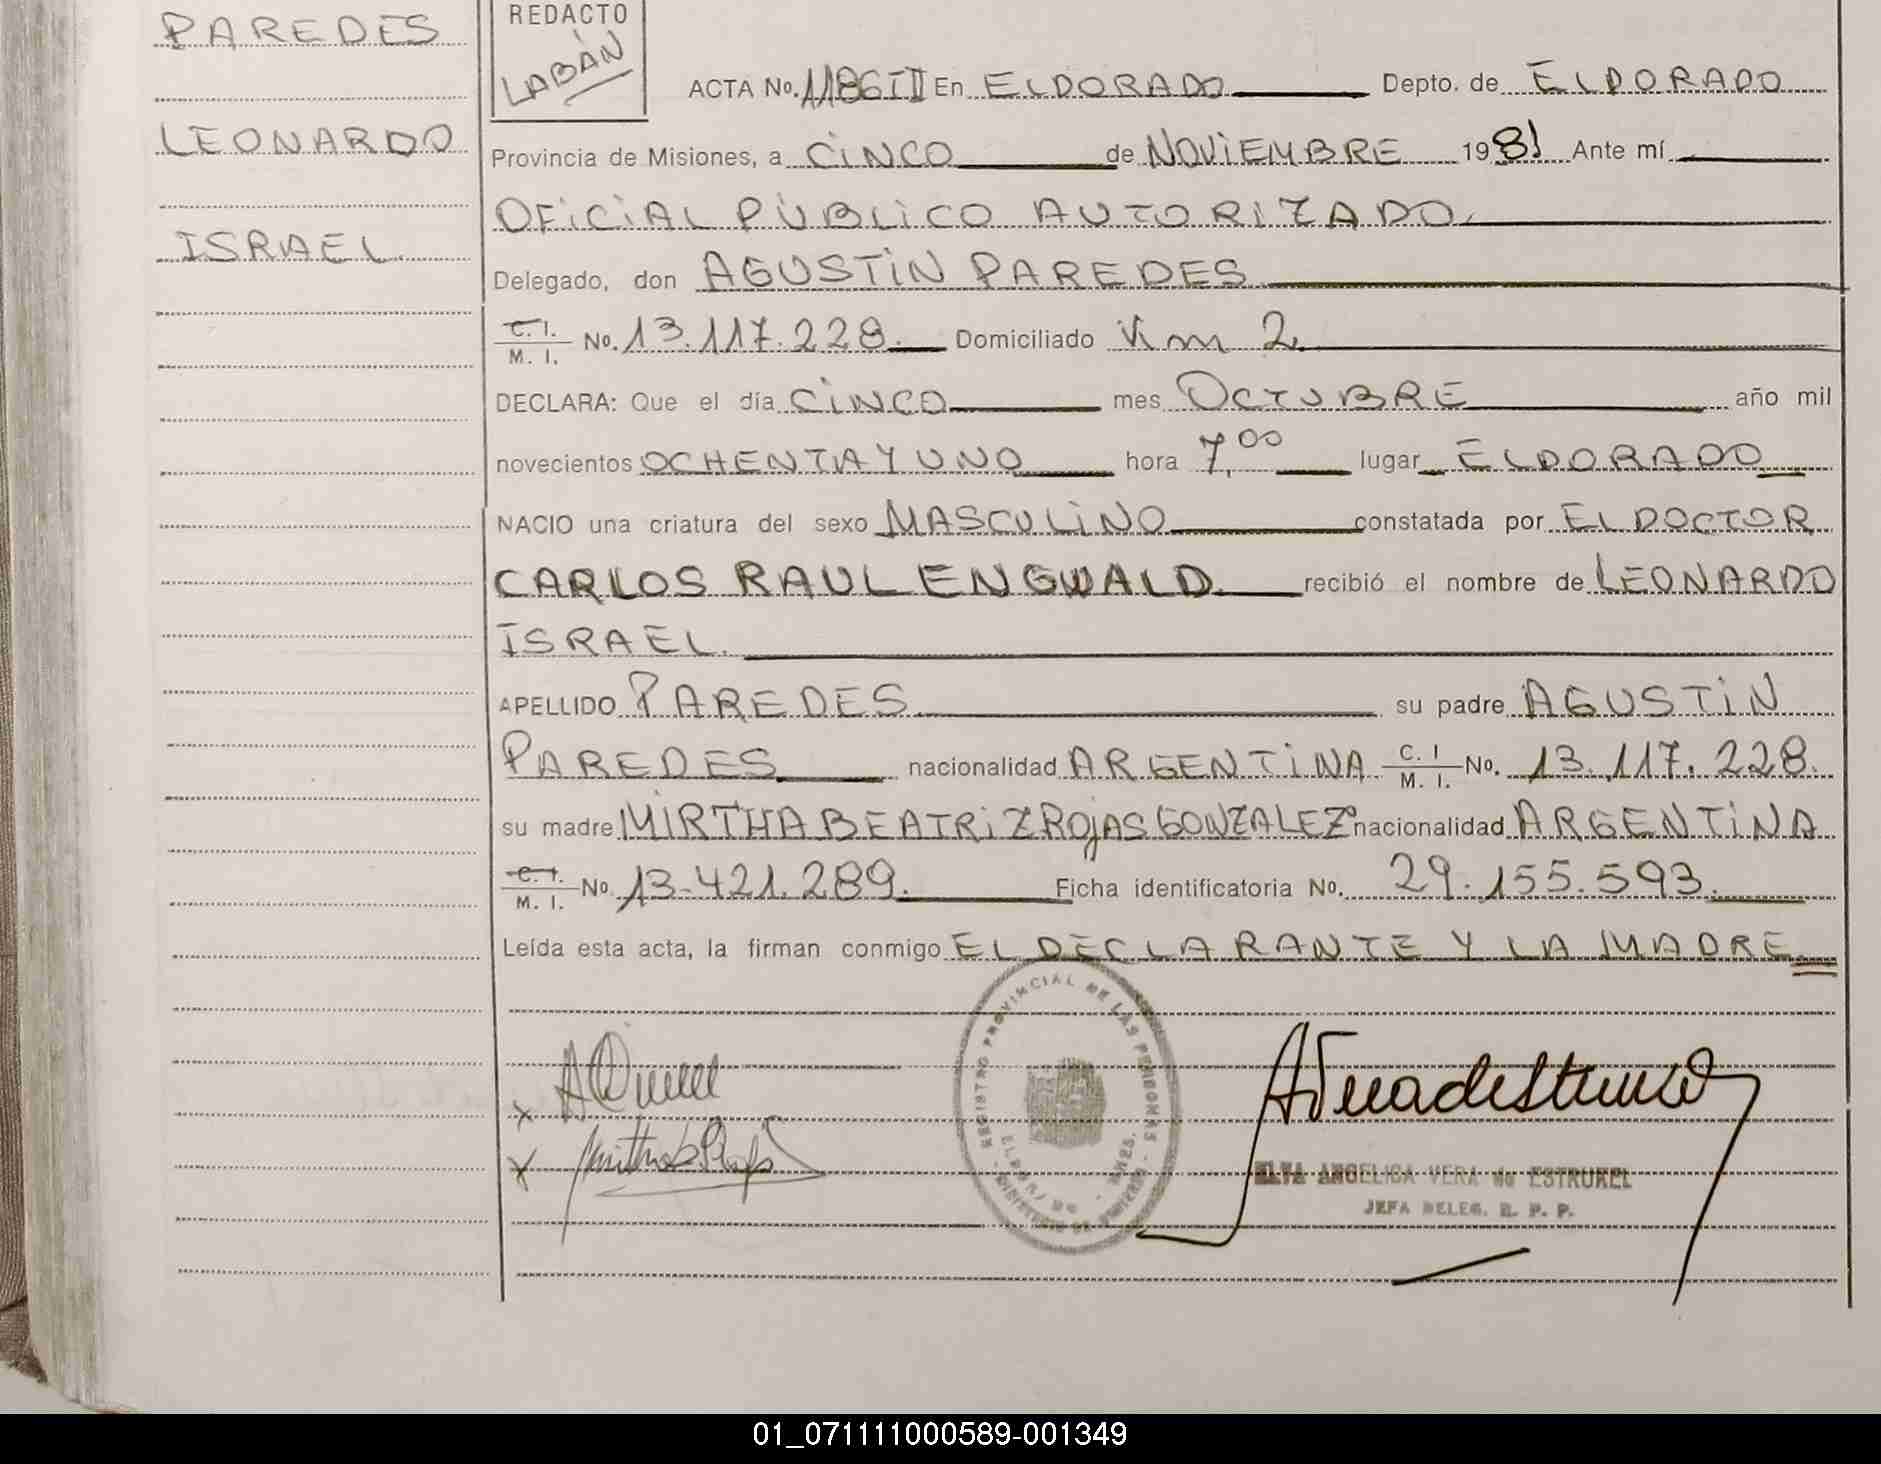 PAREDES
LEONARDO
ISRAEL.
REDACTO
LABÁN
ACTA No. 1186 T II En ELDORADO Depto. de ELDORADO
Provincia de Misiones, a CINCO de NOVIEMBRE 1981 Ante mí
OFICIAL PÚBLICO AUTORIZADO.
Delegado, don AGUSTIN PAREDES
C. I. M. I. No. 13.117.228. Domiciliado Km 2.
DECLARA: Que el día CINCO mes OCTUBRE año mil
novecientos OCHENTA Y UNO hora 7,00 lugar ELDORADO
NACIO una criatura del sexo MASCULINO constatada por EL DOCTOR
CARLOS RAUL ENGWALD. recibió el nombre de LEONARDO
ISRAEL.
APELLIDO PAREDES su padre AGUSTIN
PAREDES nacionalidad ARGENTINA C. I M. I. No. 13.117.228.
su madre MIRTHA BEATRIZ ROJAS GONZALEZ nacionalidad ARGENTINA
C. I. M. I. No. 13.421.289. Ficha identificatoria No. 29.155.593.
Leída esta acta, la firman conmigo EL DECLARANTE Y LA MADRE.
REGISTRO PROVINCIAL DE LAS PERSONAS
ELVA ANGELICA VERA de ESTRUKEL
JEFA DELEG. R. P. P.
01_071111000589-001349